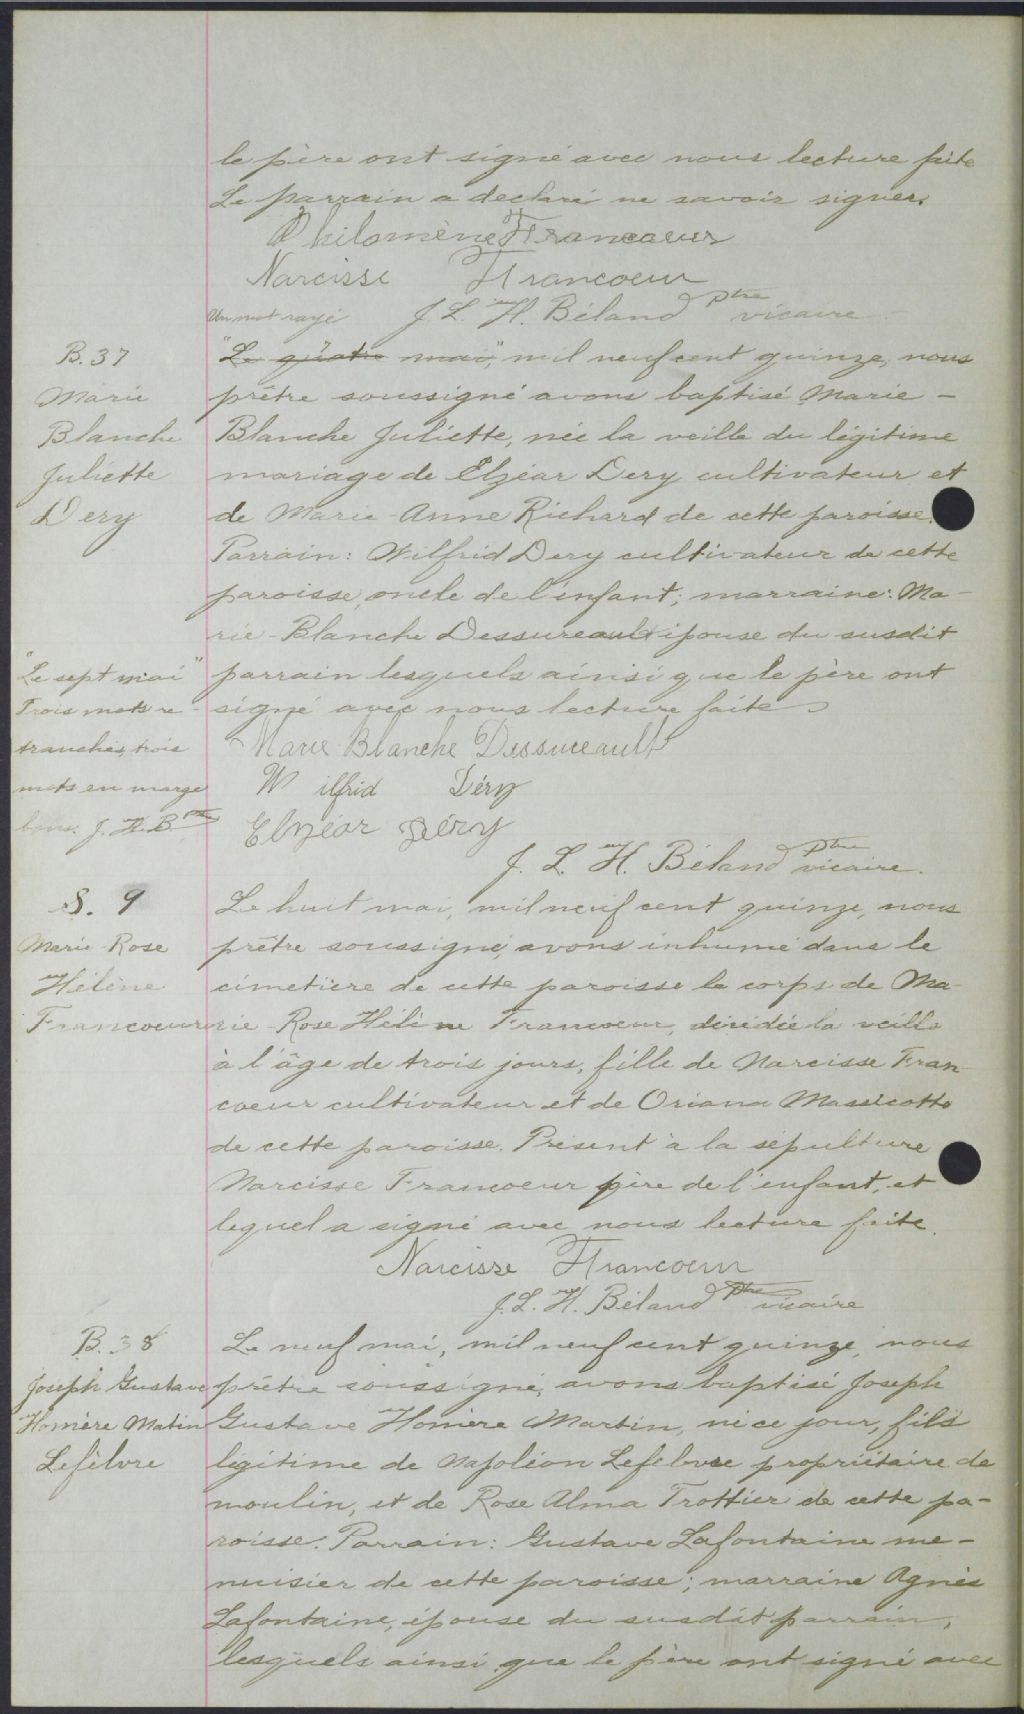 le père ont signé avec nous lecture faite
Le parrain a declaré ne savoir signer.
Philomène Francoeur
Narcisse Francoeur
Un mot rayé J. L. H. Béland Ptre vicaire
B. 37
Marie
Blanche
Juliette
Dery
"Le quatre mai," mil neuf cent quinze, nous
prêtre soussigné avons baptisé Marie -
Blanche Juliette, née la veille du légitime
mariage de Elzéar Dery cultivateur et
de Marie-Anne Richard de cette paroisse.
Parrain: Wilfrid Dery cultivateur de cette
paroisse, oncle de l'enfant; marraine: Ma-
rie-Blanche Dessureault épouse du susdit
parrain lesquels ainsi que le père ont
signé avec nous lecture faite
"Le sept mai"
Trois mots re-
tranchés, trois
mots en marge
bons. J. H. B. ptre
Marie Blanche Dessureault
Wilfrid Déry
Elzéar Déry
J. L. H. Béland Ptre vicaire.
S. 9
Marie-Rose
Hélène
Francoeur
Le huit mai, mil neuf cent quinze, nous
prêtre soussigné, avons inhumé dans le
cimetière de cette paroisse le corps de Ma-
rie-Rose Hélène Francoeur, décédée la veille
à l'âge de trois jours, fille de Narcisse Fran-
coeur cultivateur et de Oriana Massicotte
de cette paroisse. Présent à la sépulture
Narcisse Francoeur père de l'enfant, et
lequel a signé avec nous lecture faite.
Narcisse Francoeur
J. L. H. Béland Ptre vicaire
B. 38
Joseph Gustave
Homère Matin
Lefèbvre
Le neuf mai, mil neuf cent quinze, nous
prêtre soussigné, avons baptisé Joseph
Gustave Homère Martin, né ce jour, fils
légitime de Napoléon Lefebvre propriétaire de
moulin, et de Rose Alma Trottier de cette pa-
roisse. Parrain: Gustave Lafontaine me-
nuisier de cette paroisse; marraine Agnès
Lafontaine, épouse du susdit parrain,
lesquels ainsi que le père ont signé avec